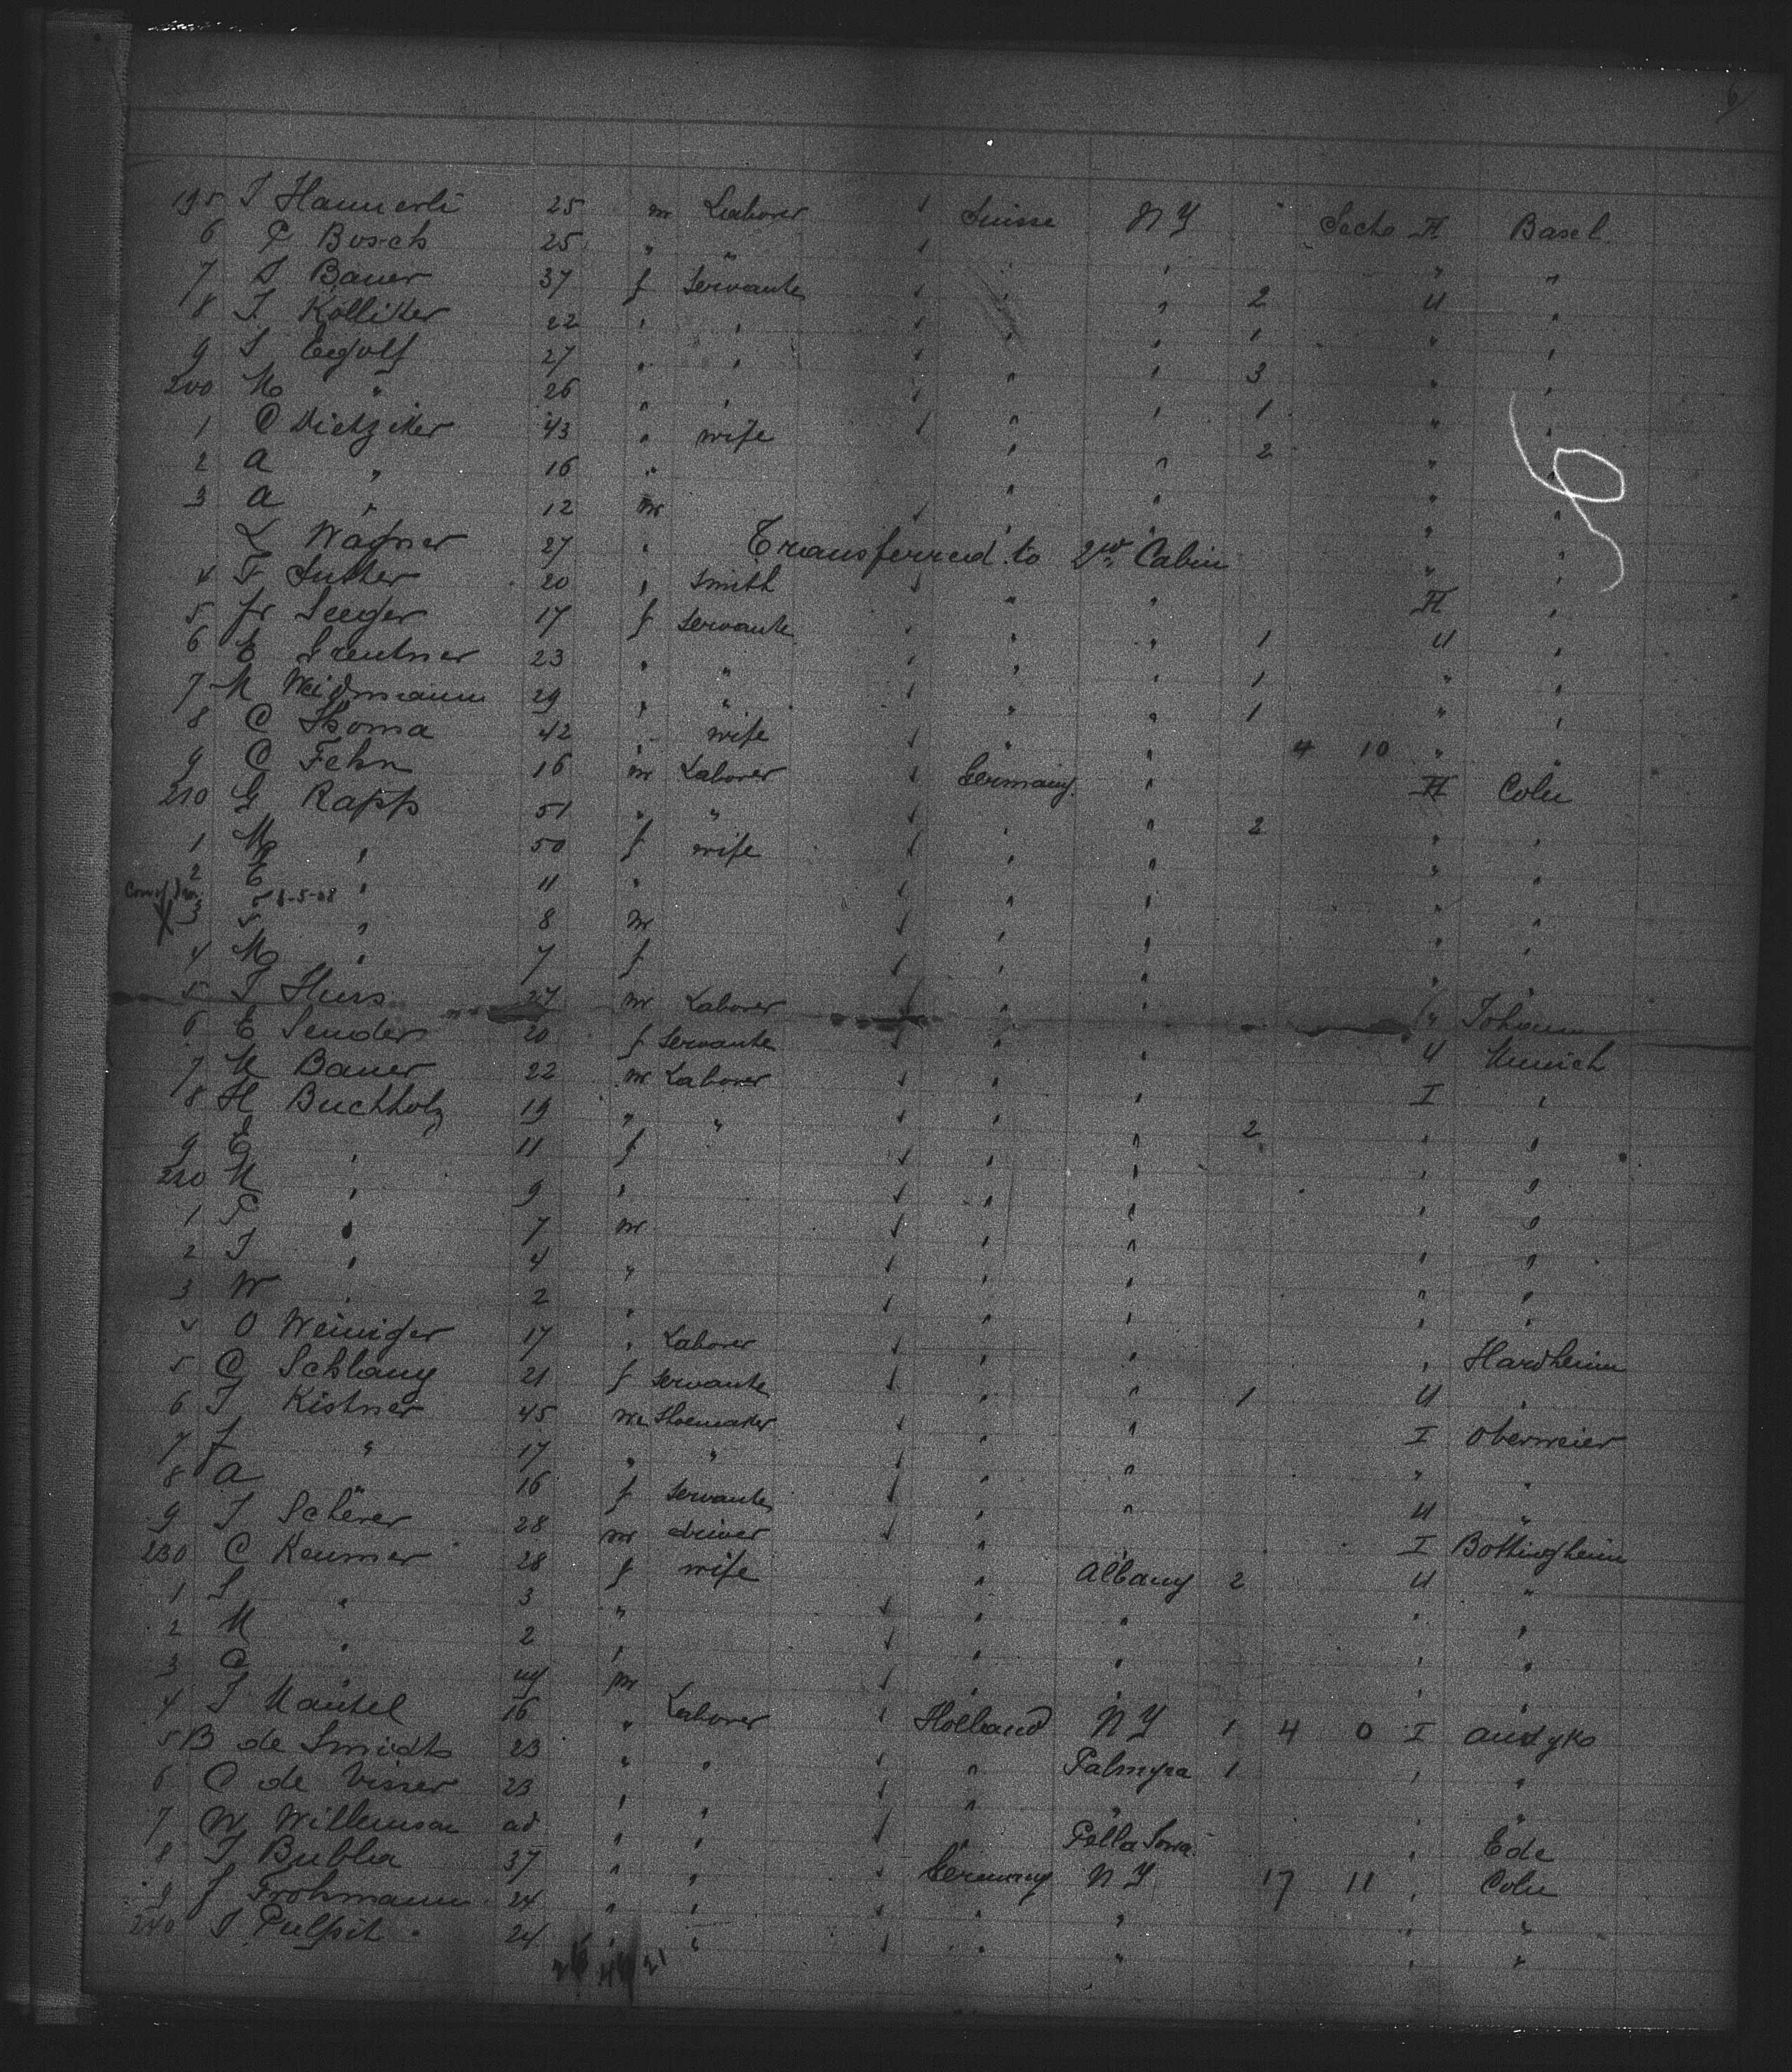 6
195 J Hannerli 25 m Laborer Suisse N Y Secho II Basel
6 P Bosch 25 " " " "
7 S Bauer 37 f servante " " 2 U "
8 J Kolliker 22 " " " " 1 " "
9 S Eegolf 27 " " " " 3 " "
200 M " 26 " " " " 1 " "
1 C Dietziker 43 " wife " " 2 " "
2 A " 16 " " " " "
3 A " 12 m " " " "
L Wagner 27 " Transferred to 2nd Cabin " "
4 F Sutter 20 " Smith " " II "
5 Fr Seeger 17 f servante " " 1 U "
6 E Greutner 23 " " " " 1 " "
7 M Weidmann 29 " " " " 1 " "
8 C Thoma 42 " wife " " 4 10 " "
9 C Fehn 16 m Laborer Germany " II Coln
210 G Rapp 51 " " " " 2 " "
1 M " 50 f wife " " " "
2 E " 11 " " " " "
3 " 8 m " " " "
8-5-08
4 M " 7 f " " " "
5 J Huss 27 m Laborer " " "
6 E Sender 20 f servante " " U Munich
7 M Bauer 22 m Laborer " " I "
8 H Buchholz 19 " " " " 2 " "
9 E " 11 f " " " "
220 M " 9 " " " " "
1 P " 7 m " " " "
2 J " 4 " " " " "
3 W " 2 " " " " "
4 O Weiniger 17 " Laborer " " " Hardheim
5 C Schlang 21 f servante " " 1 U "
6 J Kistner 45 m Shoemaker " " I Oberweier
7 F " 17 " " " " " "
8 A " 16 f servante " " U "
9 J Scherer 28 m driver " " I Bottingheim
230 C Kemmer 28 f wife " Albany 2 U "
1 S " 3 " " " " "
2 M " 2 " " " " "
3 C " m " " " "
4 J Mantel 16 " Laborer Holland N Y 1 4 0 I Andyko
5 B de Smidt 23 " " " Palmyra 1 " "
6 C de Visser 23 " " " " " "
7 W Willemsen ad " " " Pella Iowa " Ede
8 J Bubla 37 " " Germany N Y 17 11 " Coln
9 J Frohmann 24 " " " " " "
240 J Pulpit 24 " " " " " "
21